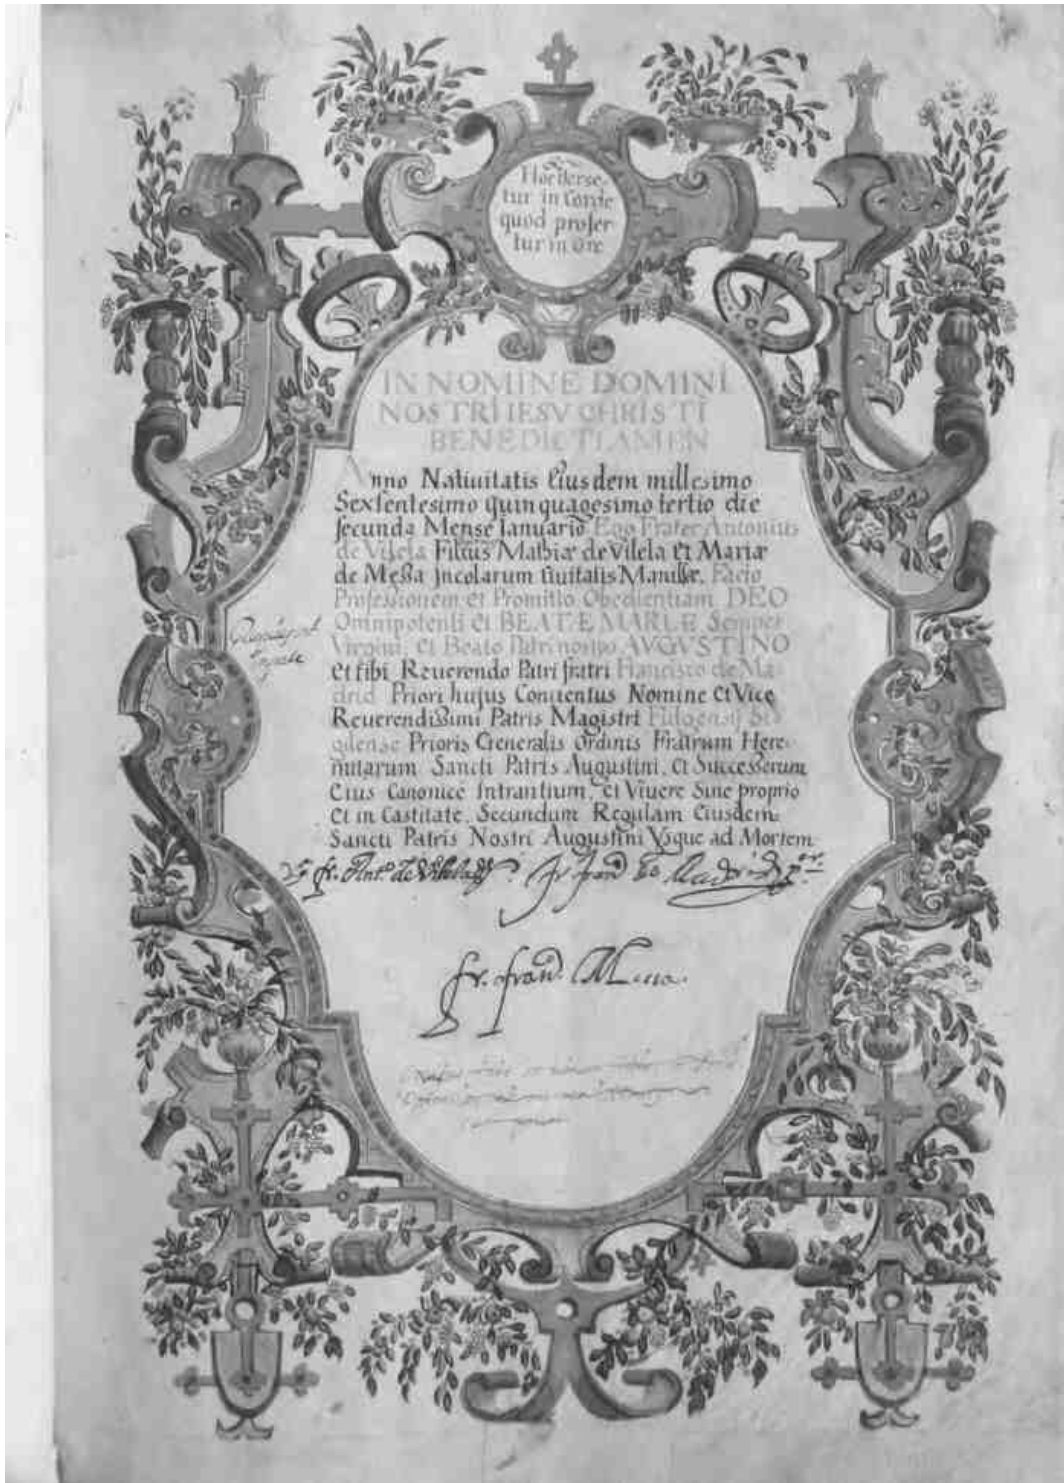 Hoc Verse-
tur in Corde
quod profer-
tur in Ore
IN NOMINE DOMINI
NOSTRI IESV CHRISTI
BENEDICTI AMEN
Anno Natiuitatis Eiusdem millesimo
Sexsentesimo quinquagesimo tertio die
secunda Mense Ianuario Ego Frater Antonius
de Vilela Filius Mathiæ de Vilela Et Mariæ
de Messa Incolarum Ciuitatis Manilæ, Facio
Professionem et Promitto Obedientiam DEO
Omnipotenti et BEATE MARIÆ Semper
Virgini, et Beato Patri nostro AVGVSTINO
Et tibi Reuerendo Patri fratri Francisco de Ma-
drid Priori hujus Conuentus Nomine Et Vice
Reuerendissimi Patris Magistri
Prioris Generalis Ordinis Fratrum Here-
mitarum Sancti Patris Augustini, Et Successorum
Eius Canonice Intrantium, Et Viuere Sine proprio
Et in Castitate, Secundum Regulam Eiusdem
Sancti Patris Nostri Augustini Vsque ad Mortem
fr. Antº de Vilela
fr. franᶜᵒ
fr. franᶜᵒ